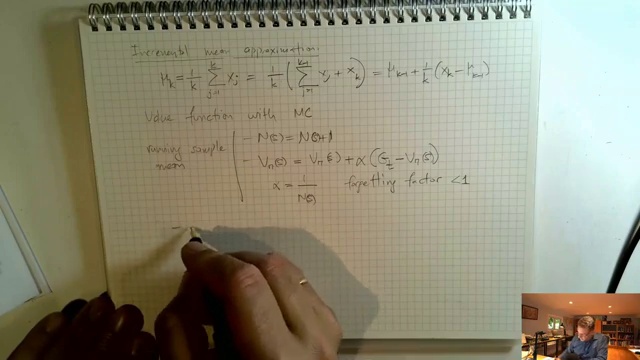 Incremental mean approximation:
μ_k = 1/k Σ_{j=1}^{k} x_j = 1/k (Σ_{j=1}^{k-1} x_j + x_k) = μ_{k-1} + 1/k (x_k - μ_{k-1})
Value function with MC
running sample mean
- N(s) = N(s)+1
- V_π(s) = V_π(s) + α (G_t - V_π(s))
α = 1/N(s) forgetting factor <1